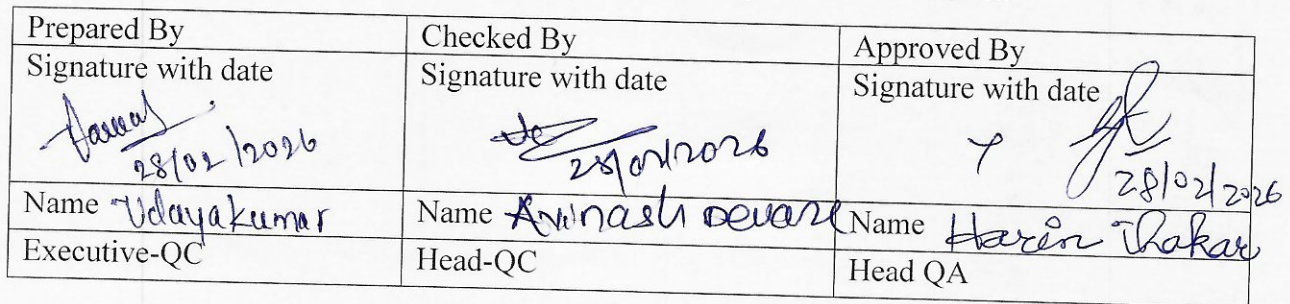 Prepared By Checked By Approved By
Signature with date Signature with date Signature with date
28/02/2026 28/02/2026 28/02/2026
Name Udayakumar Name Avinash Devare Name Harin Thakar
Executive-QC Head-QC Head QA